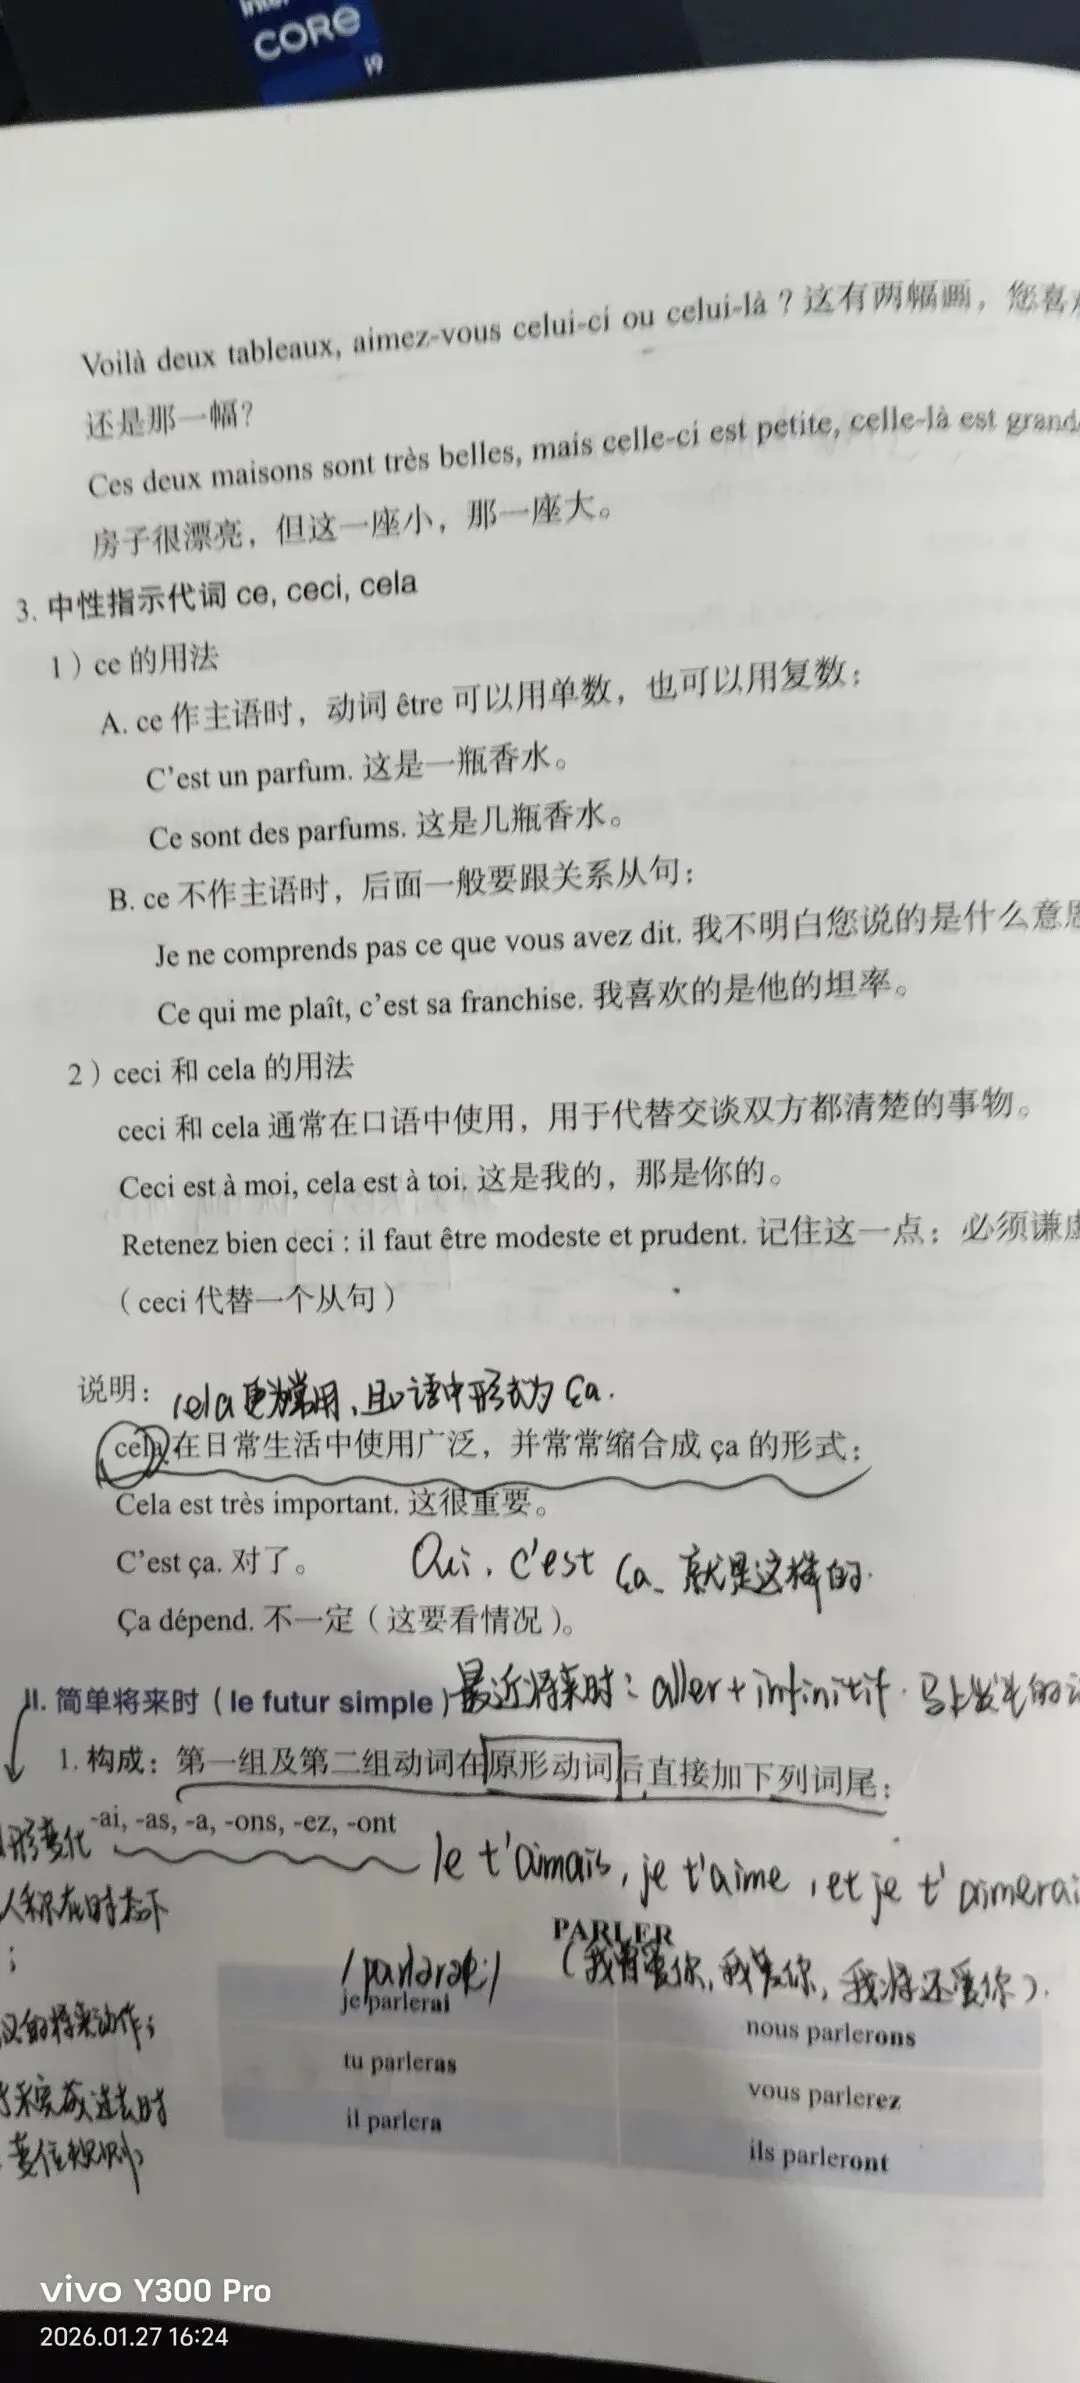 intel
CORe
i9
Voilà deux tableaux, aimez-vous celui-ci ou celui-là ? 这有两幅画，您喜
还是那一幅？
Ces deux maisons sont très belles, mais celle-ci est petite, celle-là est grand
房子很漂亮，但这一座小，那一座大。
3. 中性指示代词 ce, ceci, cela
1）ce 的用法
A. ce 作主语时，动词 être 可以用单数，也可以用复数：
C’est un parfum. 这是一瓶香水。
Ce sont des parfums. 这是几瓶香水。
B. ce 不作主语时，后面一般要跟关系从句：
Je ne comprends pas ce que vous avez dit. 我不明白您说的是什么意思
Ce qui me plaît, c’est sa franchise. 我喜欢的是他的坦率。
2）ceci 和 cela 的用法
ceci 和 cela 通常在口语中使用，用于代替交谈双方都清楚的事物。
Ceci est à moi, cela est à toi. 这是我的，那是你的。
Retenez bien ceci : il faut être modeste et prudent. 记住这一点：必须谦虚
（ceci 代替一个从句）
说明： cela更为常用，且口语中形式为 ça.
cela 在日常生活中使用广泛，并常常缩合成 ça 的形式：
Cela est très important. 这很重要。
C’est ça. 对了。 Oui, c'est ça. 就是这样的.
Ça dépend. 不一定（这要看情况）。
II. 简单将来时（le futur simple） 最近将来时：aller + infinitif. 马上发生的
1. 构成：第一组及第二组动词在原形动词后直接加下列词尾：
-ai, -as, -a, -ons, -ez, -ont
形变化
Je t'aimais, je t'aime, et je t'aimerai
人称在时态下
PARLER
(我曾爱你, 我爱你, 我将还爱你).
je parlerai nous parlerons
的将来动作;
tu parleras vous parlerez
未完成过去时
il parlera ils parleront
变位规则;
vivo Y300 Pro
2026.01.27 16:24